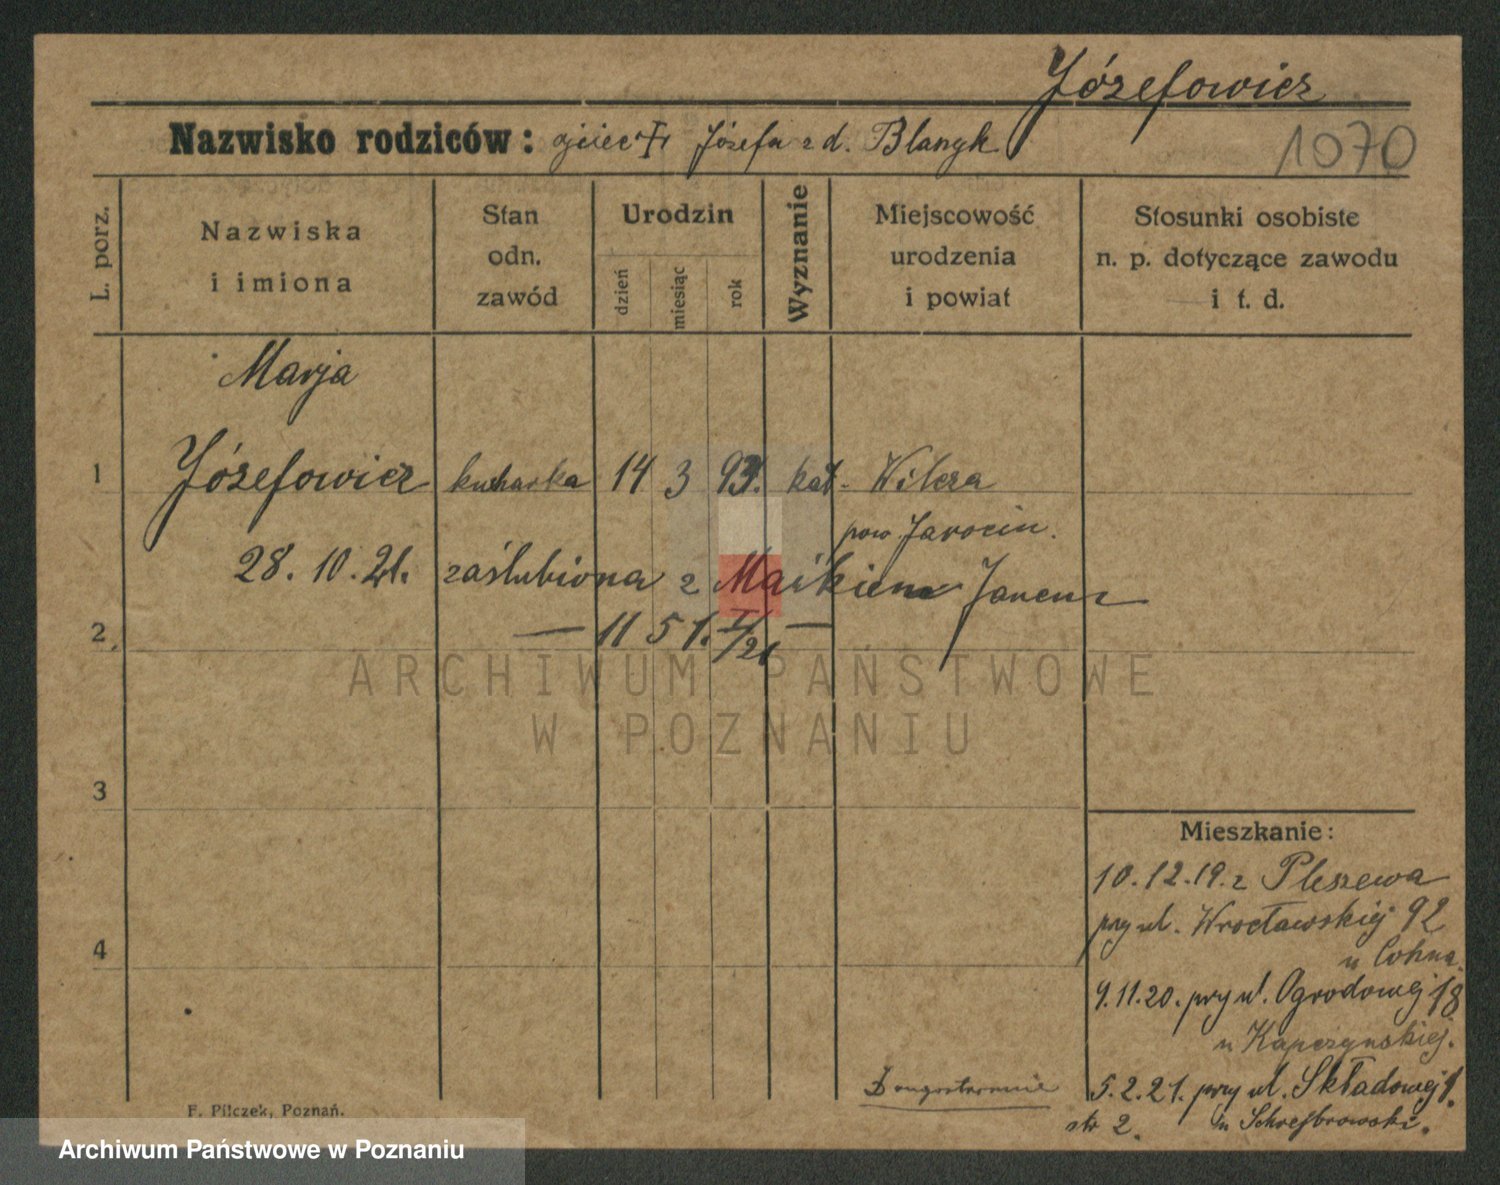 Józefowicz
Nazwisko rodziców: ojciec † Józefa z d. Blanyk
1070
L. porz.
Nazwiska
i imiona
Stan
odn.
zawód
Urodzin
dzień
miesiąc
rok
Wyznanie
Miejscowość
urodzenia
i powiat
Stosunki osobiste
n. p. dotyczące zawodu
i t. d.
Marja
1 Józefowicz kucharka 14 3 93. kat. Wilcza
pow Jarocin.
28. 10. 21. zaślubiona z Maikiem
2. — 11 51. I/21 —
3
4
Mieszkanie:
10.12.19. z Pleszewa
przy ul. Wrocławskiej 92
u Cohna.
9.11.20. przy ul. Ogrodowej 18
u Kapczyńskiej.
5.2.21. przy ul. Składowej 1.
str 2. u
F. Pilczek, Poznań.
ARCHIWUM PAŃSTWOWE
W POZNANIU
Archiwum Państwowe w Poznaniu